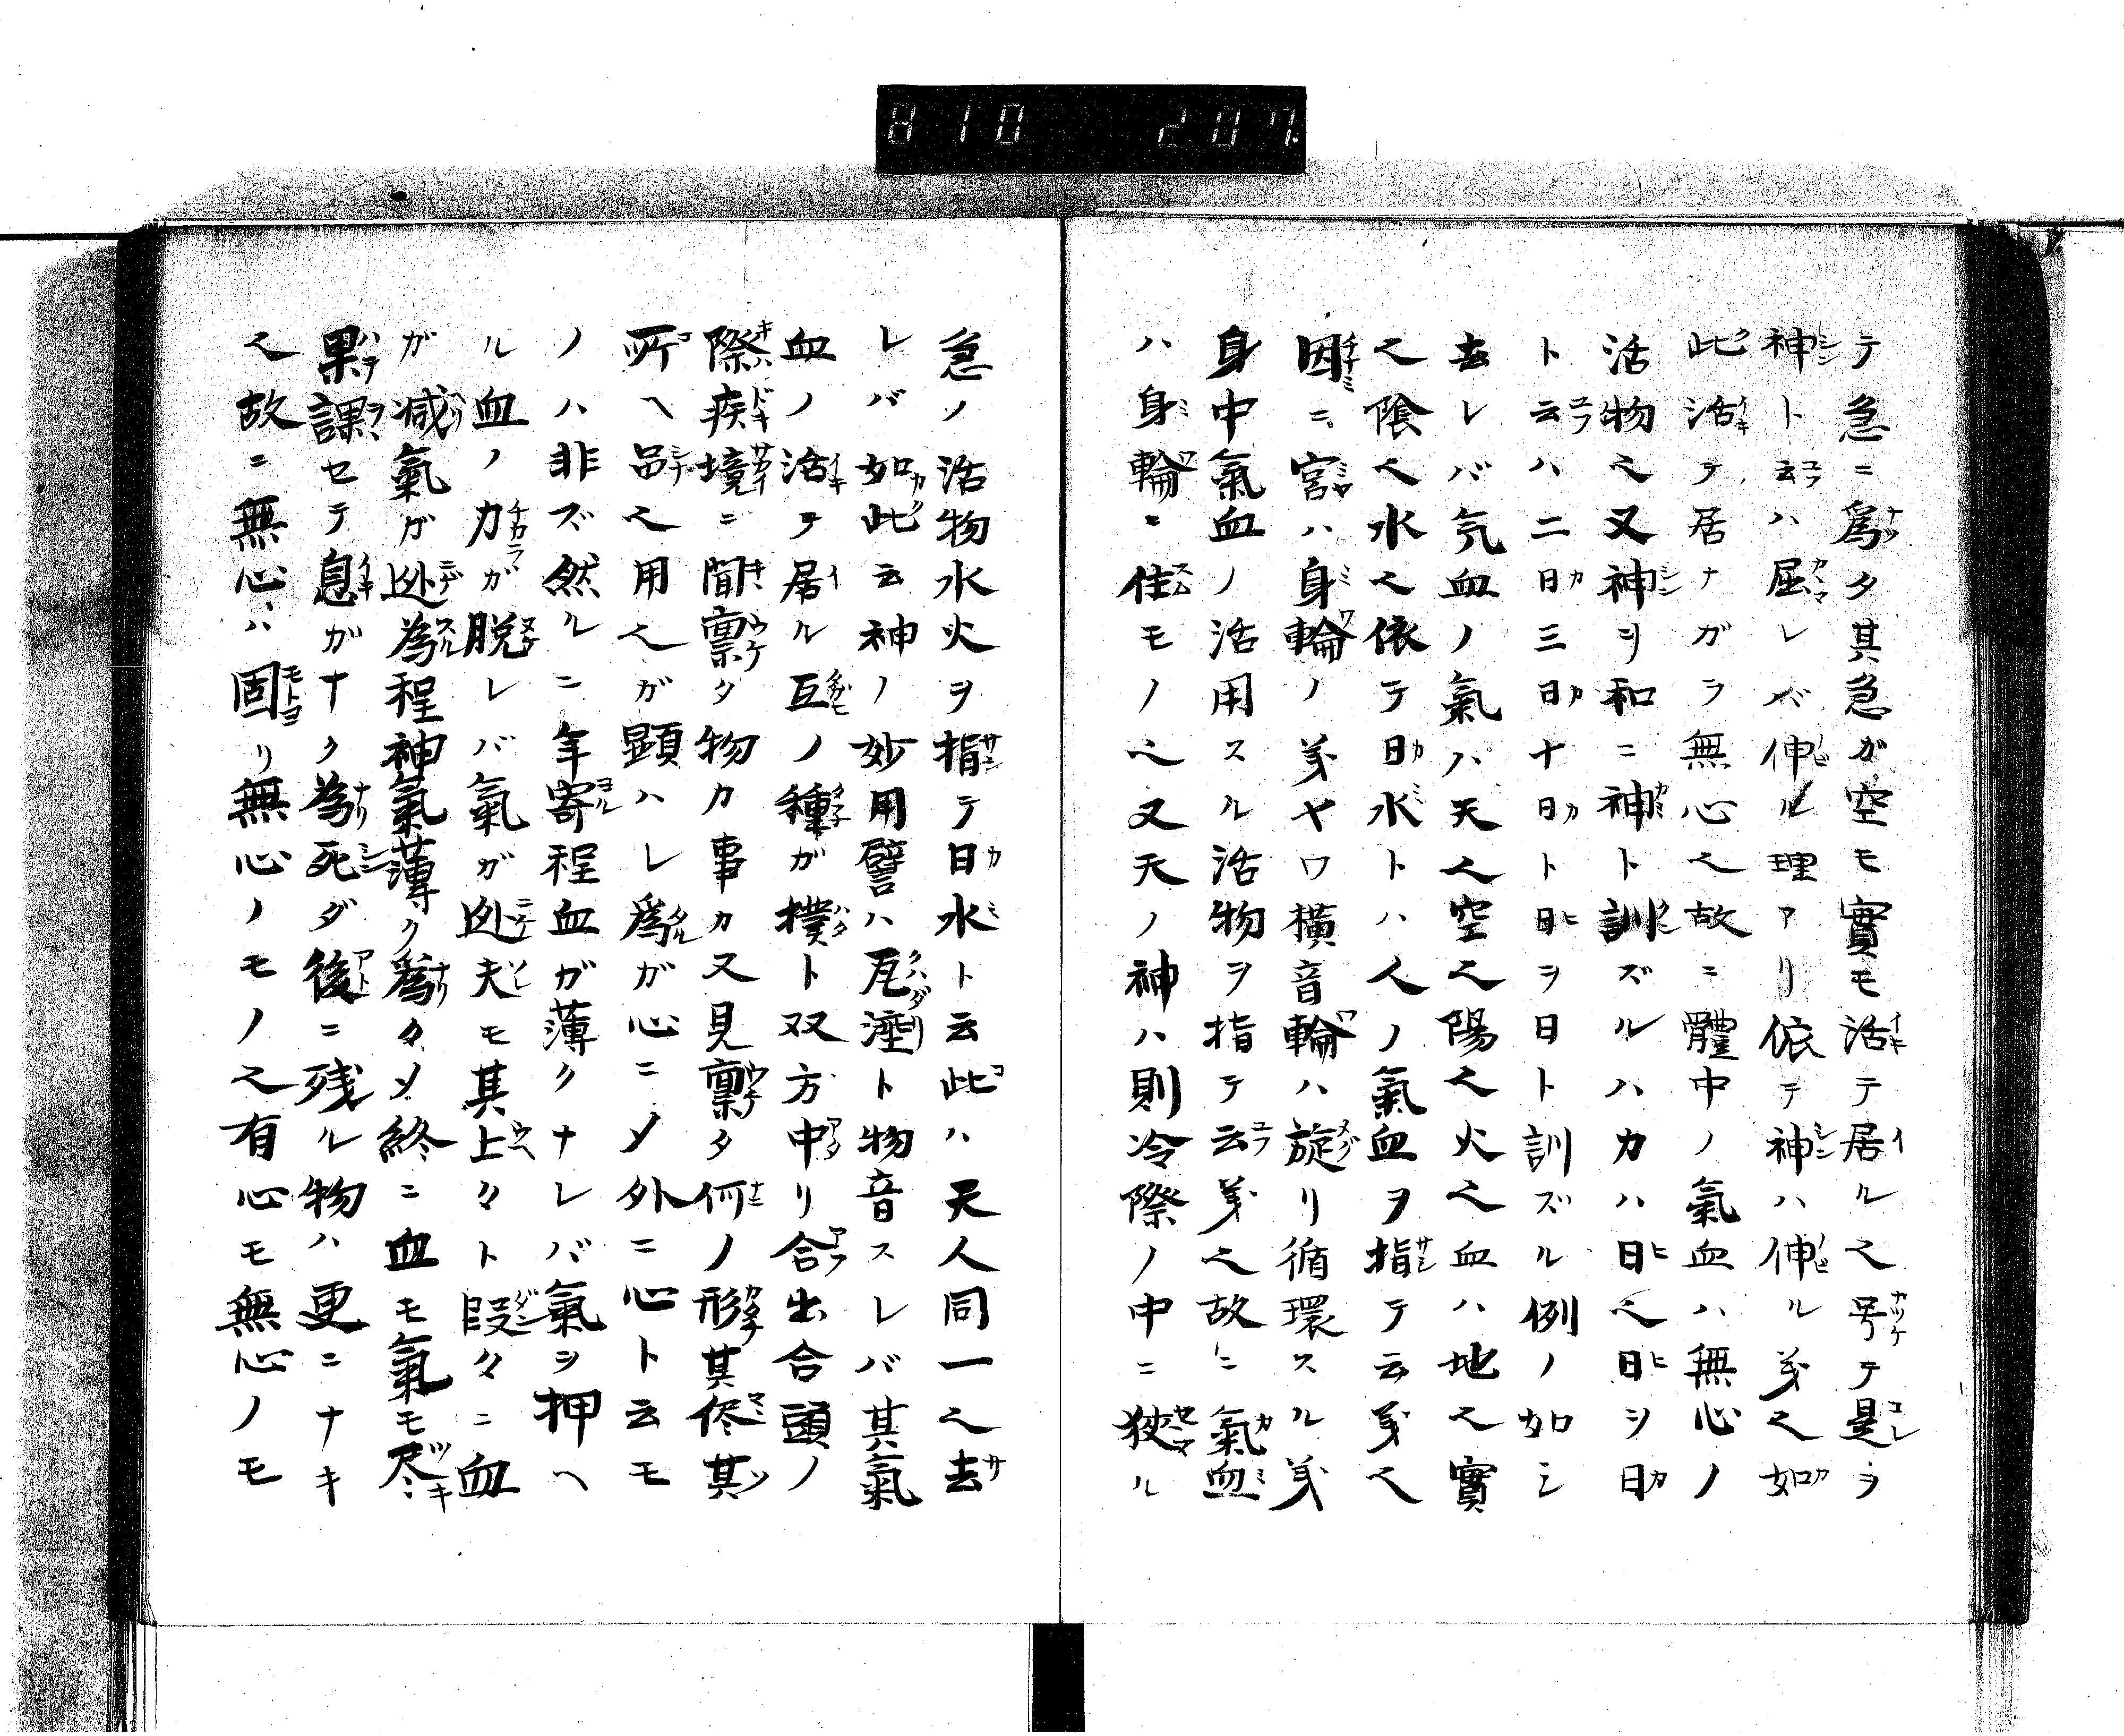 810 207.
テ急ニ爲タ其急ガ空モ實モ活テ居ル也号テ是ヲ
神ト云ハ屈レバ伸ル理アリ依テ神ハ伸ル㕝也如
此活テ居ナガラ無心也故ニ體中ノ氣血ハ無心ノ
活物也又神ヲ和ニ神ト訓ズルハカハ日也日ヲ日
ト云ハ二日三日十日ト日ヲ日ト訓ズル例ノ如シ
去レバ気血ノ氣ハ天也空也陽也火也血ハ地也實
也陰也水也依テ日水トハ人ノ氣血ヲ指テ云㕝也
因ニ宮ハ身輪ノ㕝ヤワ横音輪ハ旋リ循環スル㕝
身中氣血ノ活用スル活物ヲ指テ云㕝也故ニ氣血
ハ身輪ニ住モノ也又天ノ神ハ則冷際ノ中ニ狹ル
急ノ活物水火ヲ指テ日水ト云此ハ天人同一也去
レバ如此云神ノ妙用譬ハ瓦土ト物音スレバ其氣
血ノ活テ居ル互ノ種ガ撲ト双方中リ合出合頭ノ
際疾境ニ聞稟タ物カ事カ又見稟タ何ノ形其侭其
所ヘ皿也用也ガ顕ハレ爲ガ心ニ〆外ニ心ト云モ
ノハ非ズ然ルニ年寄程血ガ薄クナレバ氣ヲ押ヘ
ル血ノ力ガ脱レバ氣ガ迯夫モ其上々ト段々ニ血
ガ減氣ガ迯為程神氣薄ク爲タメ終ニ血モ氣モ尽
果課セテ息ガナク為死ダ後ニ残ル物ハ更ニナキ
也故ニ無心ハ固リ無心ノモノ也有心モ無心ノモ